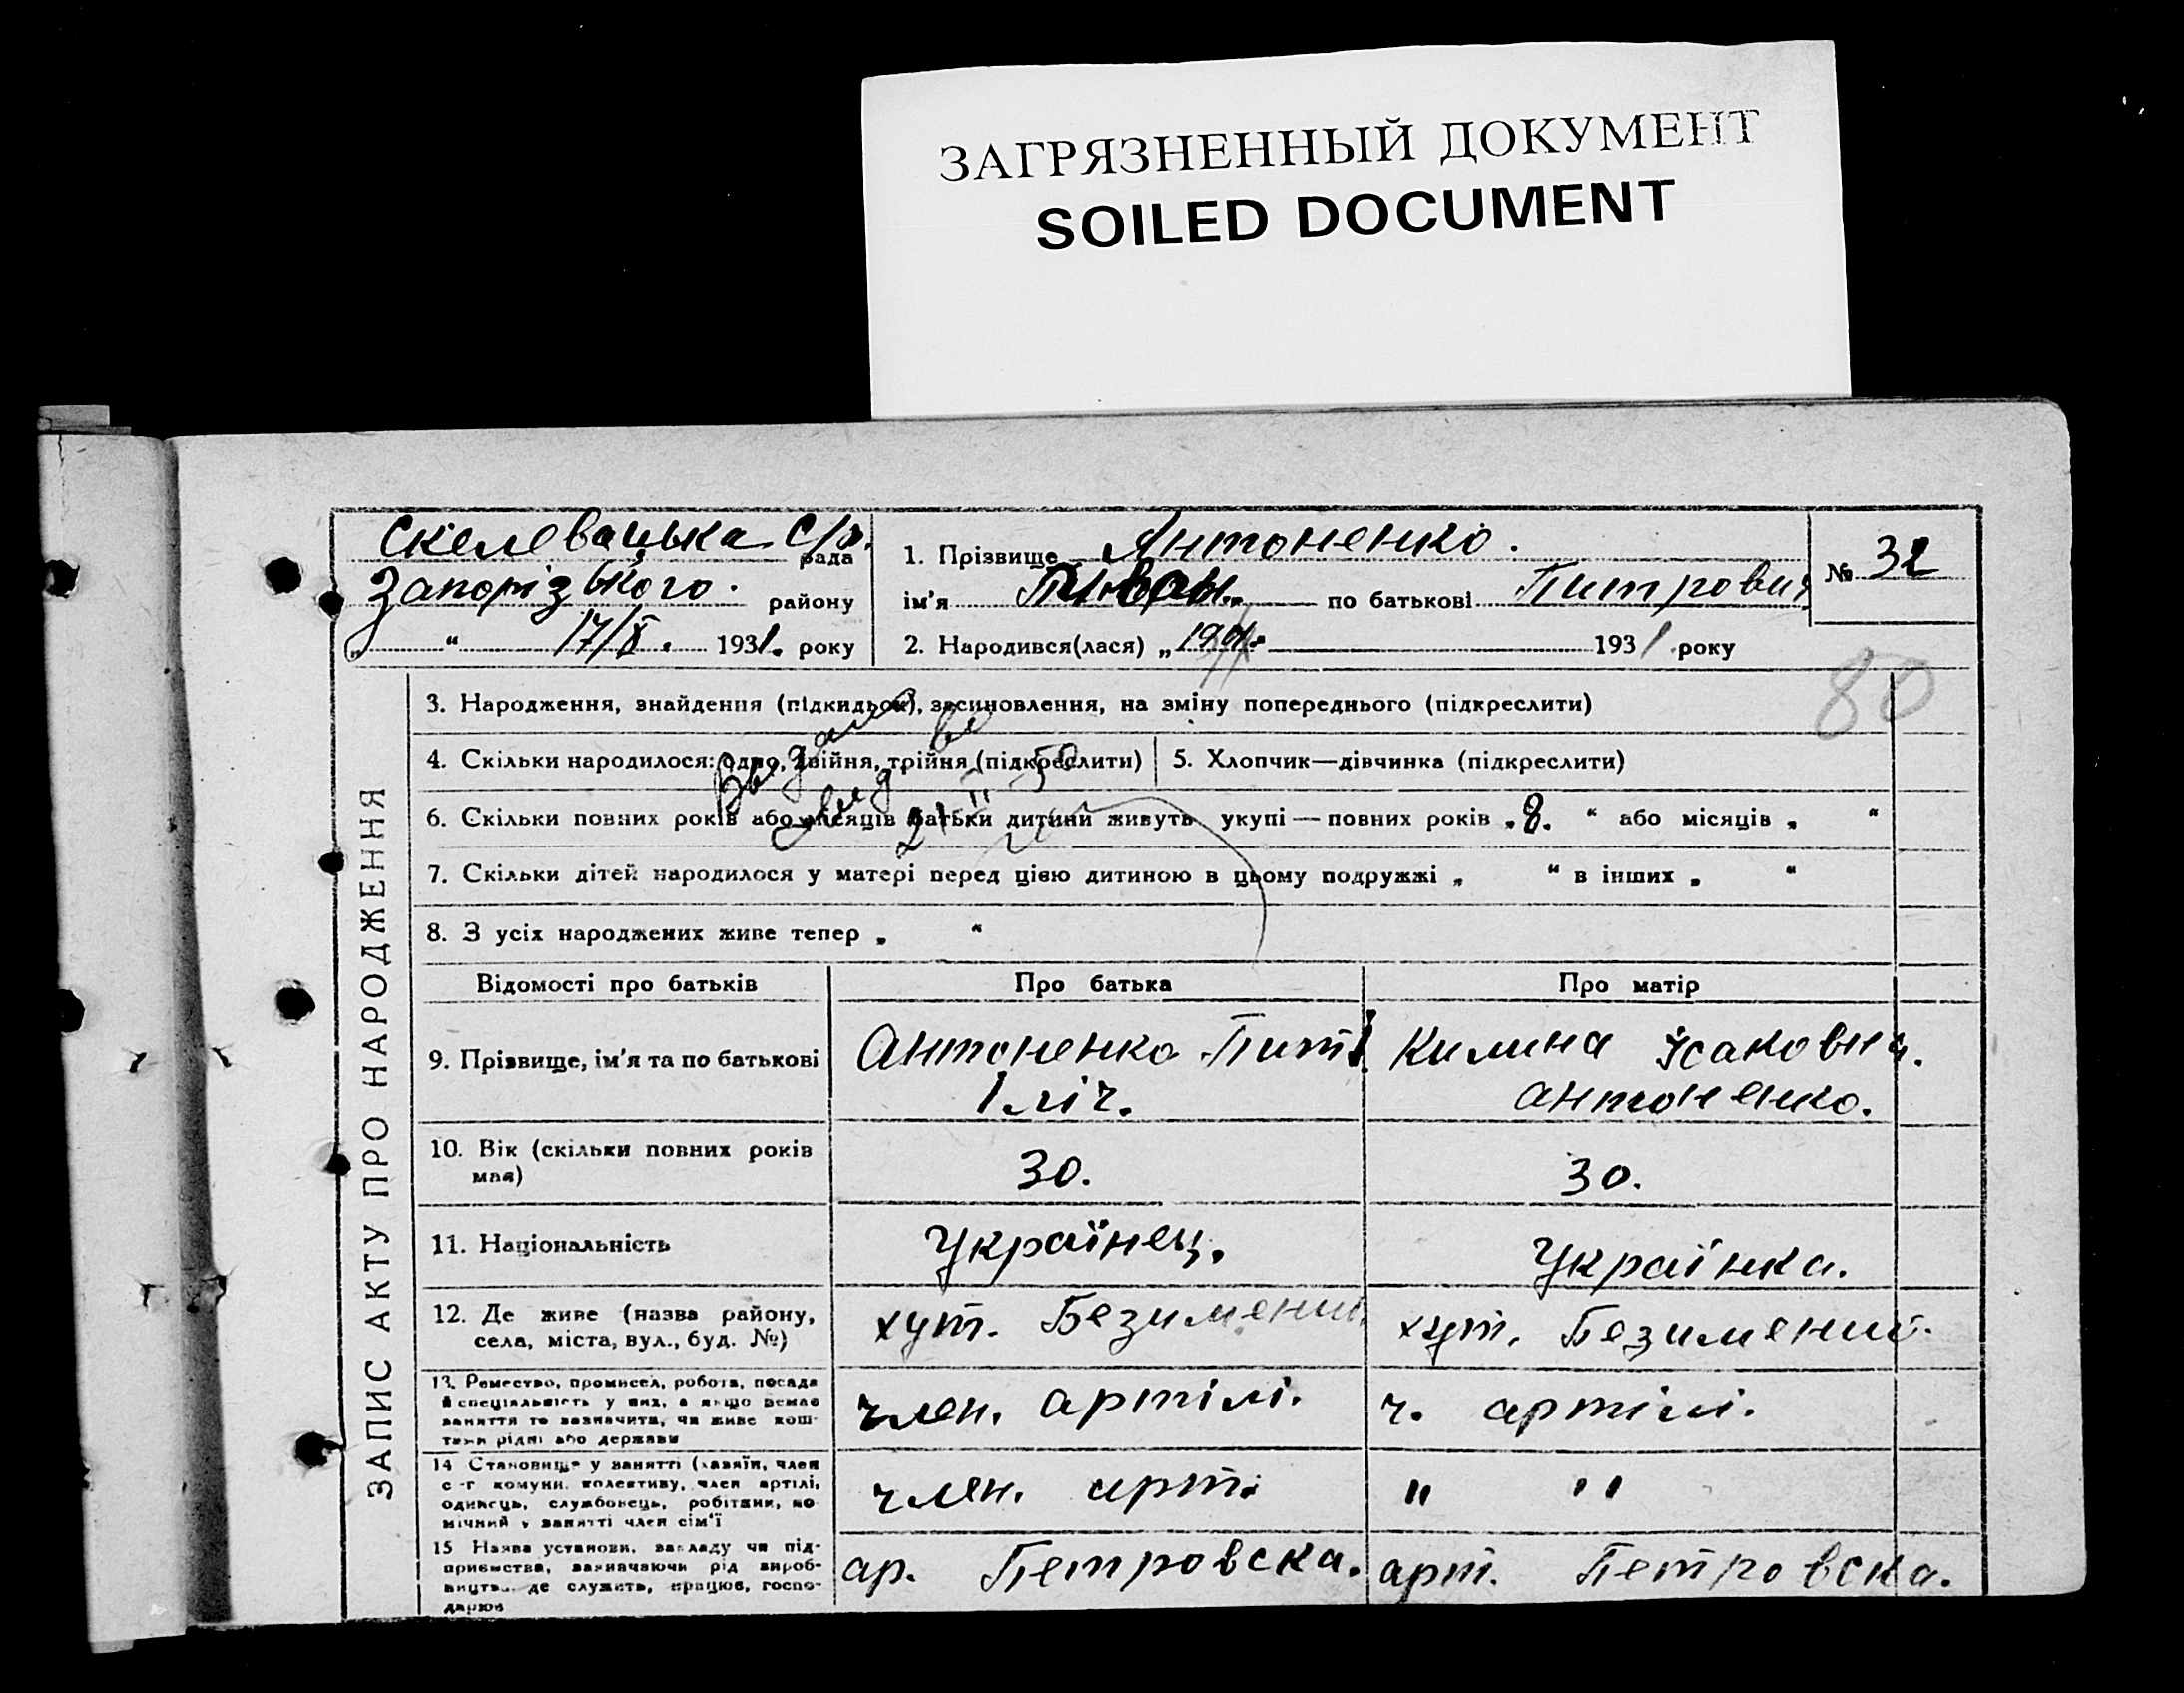 ЗАГРЯЗНЕННЫЙ ДОКУМЕНТ
SOILED DOCUMENT
Скелевацька с/р. рада
Запорізького. району
„ “ 17/X. 1931. року
1. Прізвище Антоненко.
ім'я по батькові Питрович
№ 32
2. Народився(лася) „ 1931 року
80
ЗАПИС АКТУ ПРО НАРОДЖЕННЯ
3. Народження, знайдення (підкидьок), засиновлення, на зміну попереднього (підкреслити)
4. Скільки народилося: одно, двійня, трійня (підкреслити)
5. Хлопчик—дівчинка (підкреслити)
6. Скільки повних років або місяців батьки дитини живуть укупі — повних років „8. “ або місяців „ “
7. Скільки дітей народилося у матері перед цією дитиною в цьому подружжі „ “ в інших „ “
8. З усіх народжених живе тепер „ “
Відомості про батьків Про батька Про матір
9. Прізвище, ім'я та по батькові
Антоненко Пит
Іліч.
Килина Ісаковна.
Антоненко.
10. Вік (скільки повних років
має)
30.
30.
11. Національність
Українець.
Українка.
12. Де живе (назва району,
села, міста, вул., буд. №)
хут. Безимений.
хут. Безимений.
13. Ремество, промисел, робота, посада
й спеціальність у них, а якщо немає
заняття то зазначити, чи живе кош-
тами рідні або держави
член. артілі.
ч. артілі.
14 Становище у занятті (хазяїн, член
с-г комуни, колективу, член артілі,
одинець, службовець, робітник, по-
мічний у занятті член сім'ї
член. арт.
" "
15 Назва установи, закладу чи під-
приємства, зазначаючи рід вироб-
ництва, де служить, працює, госпо-
дарює
ар. Петровска.
арт. Петровска.